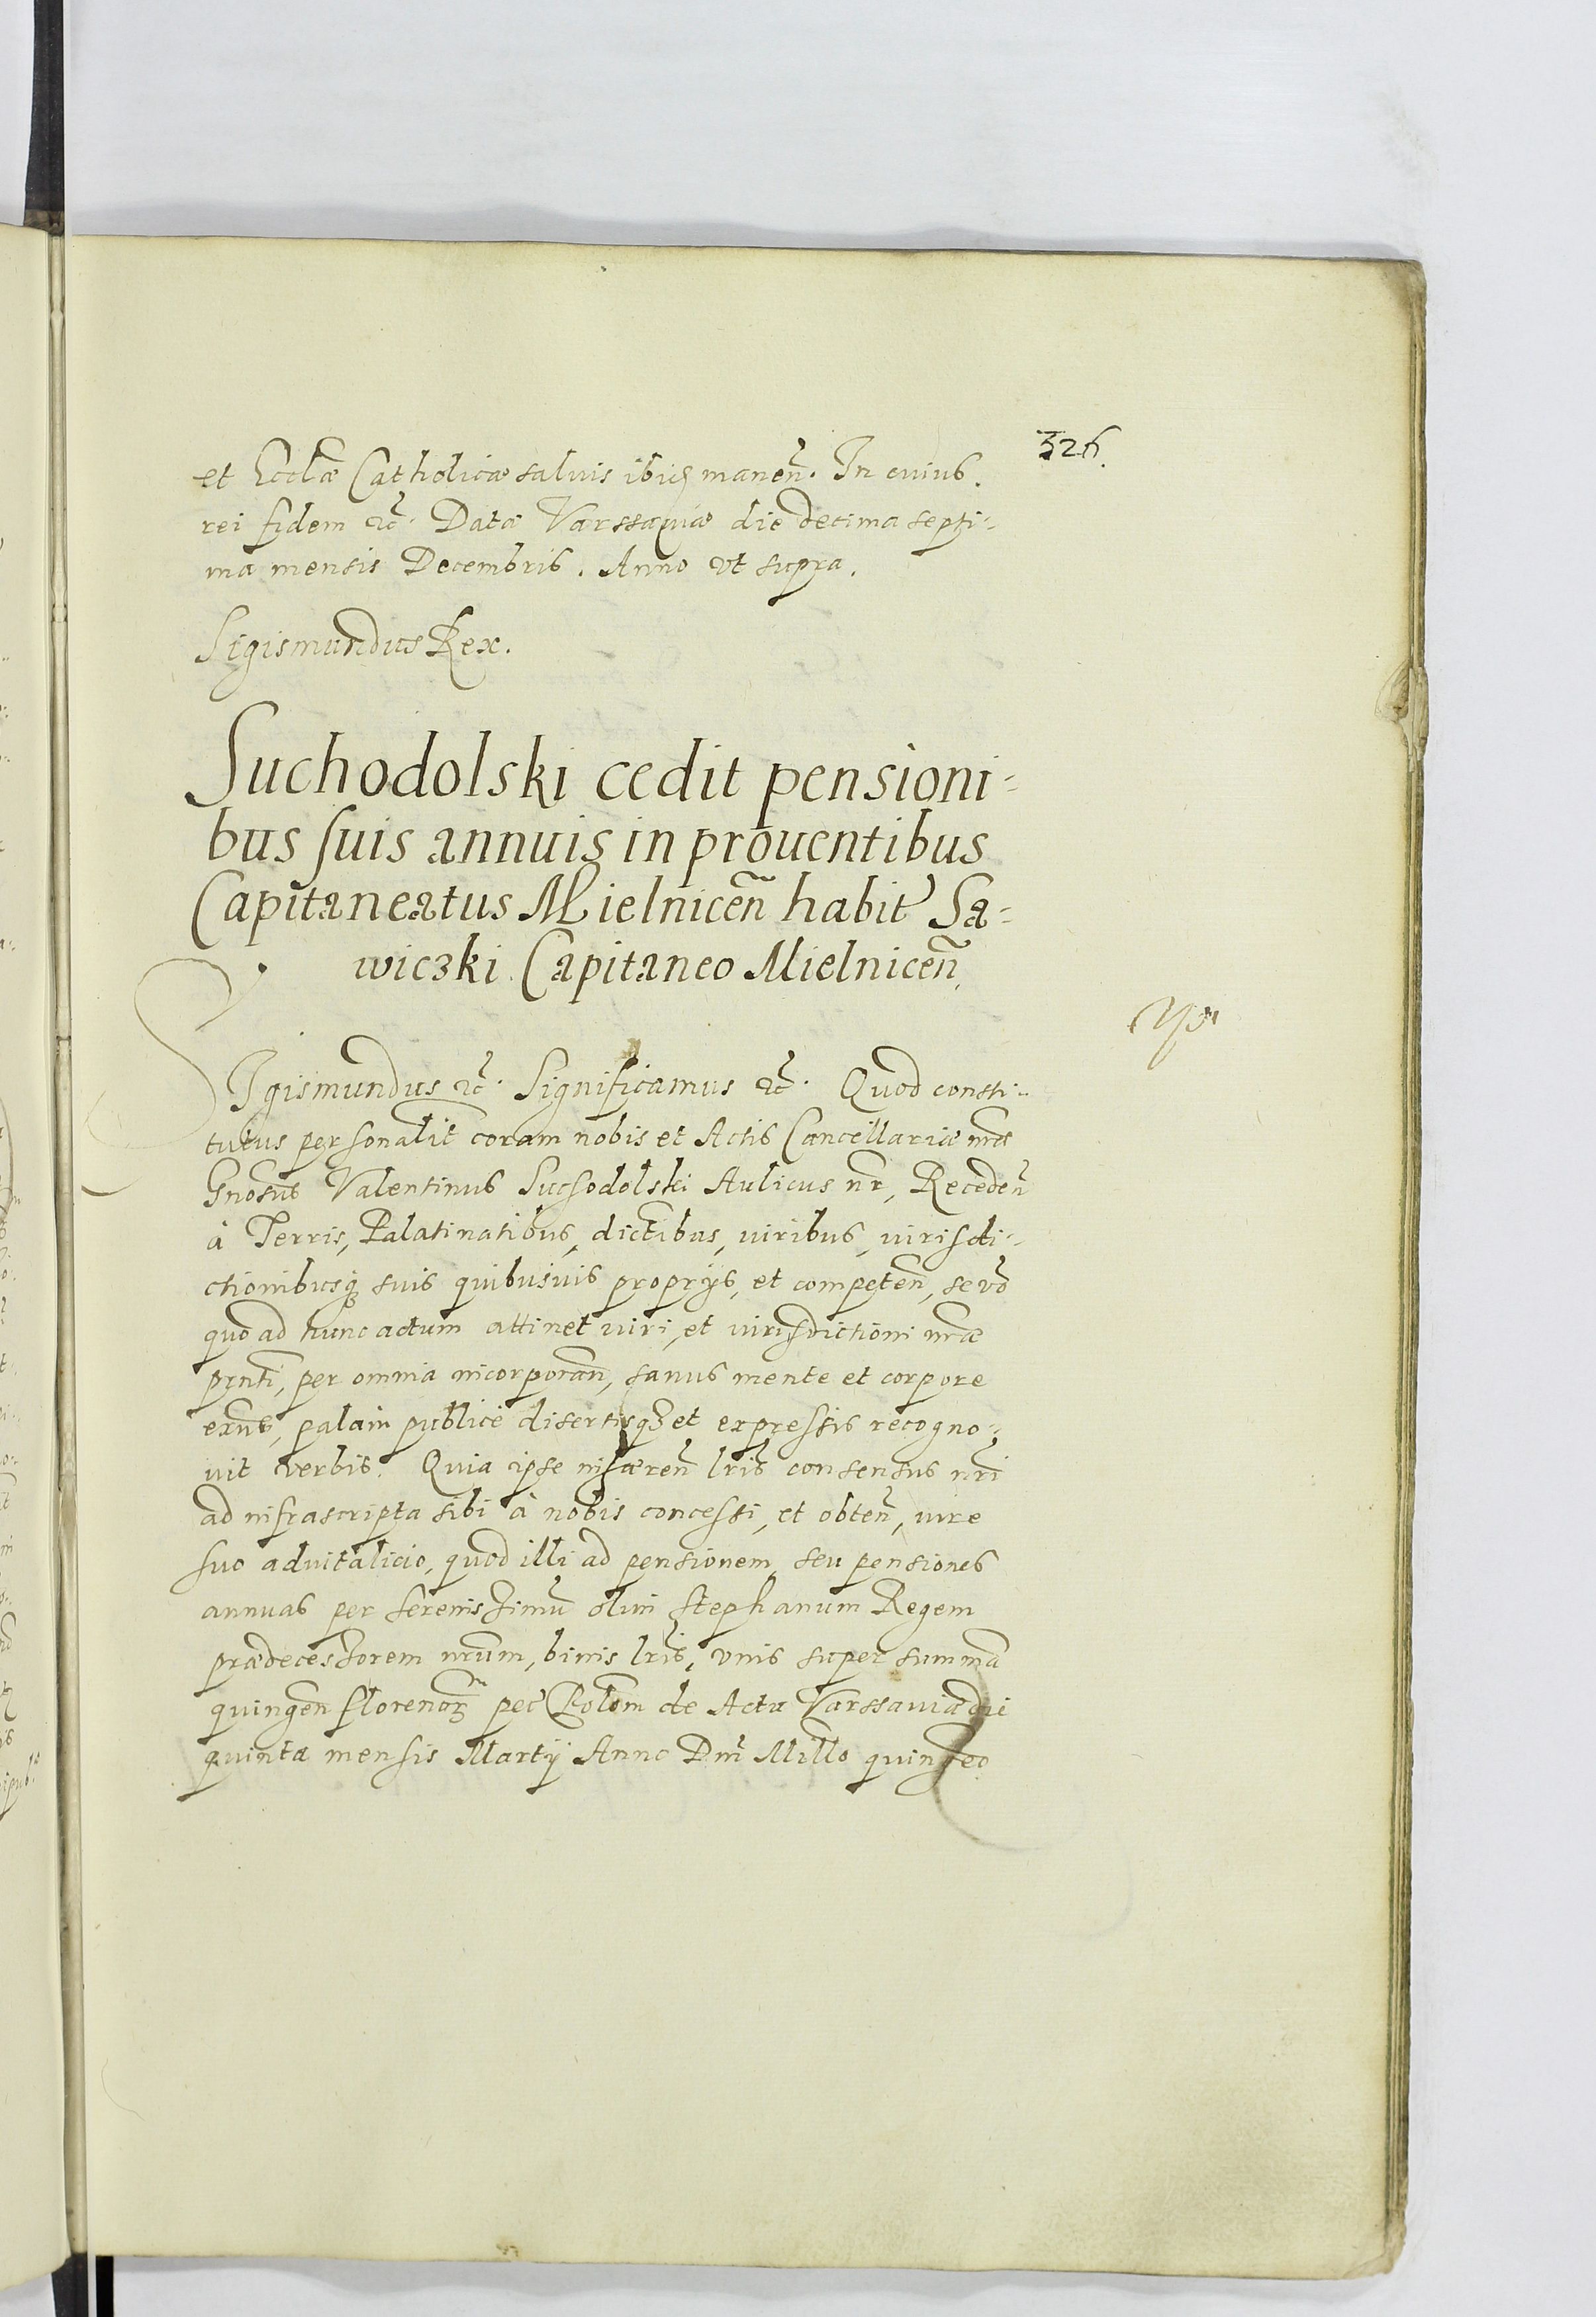 326.
et Eccłæ Catholicæ salvis ibidē manen̄. In cuius
rei fidem etc̄. Datæ Varssaviæ die decima septi-
ma mensis Decembris. Anno vt supra.
Sigismundus Rex.
Suchodolski cedit pensioni-
bus suis annuis in prouentibus
Capitaneatus Mielnicen̄ habit̄ Sa-
wiczki Capitaneo Mielnicen̄
SIgismundus etc̄. Significamus etc̄. Quod consti-
tutus personalit̄ coram nobis et Actis Cancellariæ nr̄æ
Gn̄osus Valentinus Suchodolski Aulicus nr̄, Receden̄
à Terris, Palatinatibus, dict̄ibus, iuribus, iurisdi-
ctionibusq3 suis quibusuis proprijs, et competen̄, se vō
quo ad hunc actum attinet iuri, et iurisdictioni nr̄æ
pn̄ti, per omnia incorporan̄, sanus mente et corpore
exn̄s, palàm publicè disertisq3 et expressis recogno-
uit verbis. Quia ipse inhæren̄ lr̄is consensus nr̄i
ad infrascripta sibi à nobis concessi, et obten̄, iure
suo aduitalicio, quod illi ad pensionem, seu pensiones
annuas per serenissimū olim Stephanum Regem
prædecessorem nr̄um, binis lr̄is, vnis super summā
quingen̄ florenor̄ pec̄ Polon̄ de Actu Varssauiæ die
quinta mensis Martij Anno Dn̄i Mill̄o quingēo